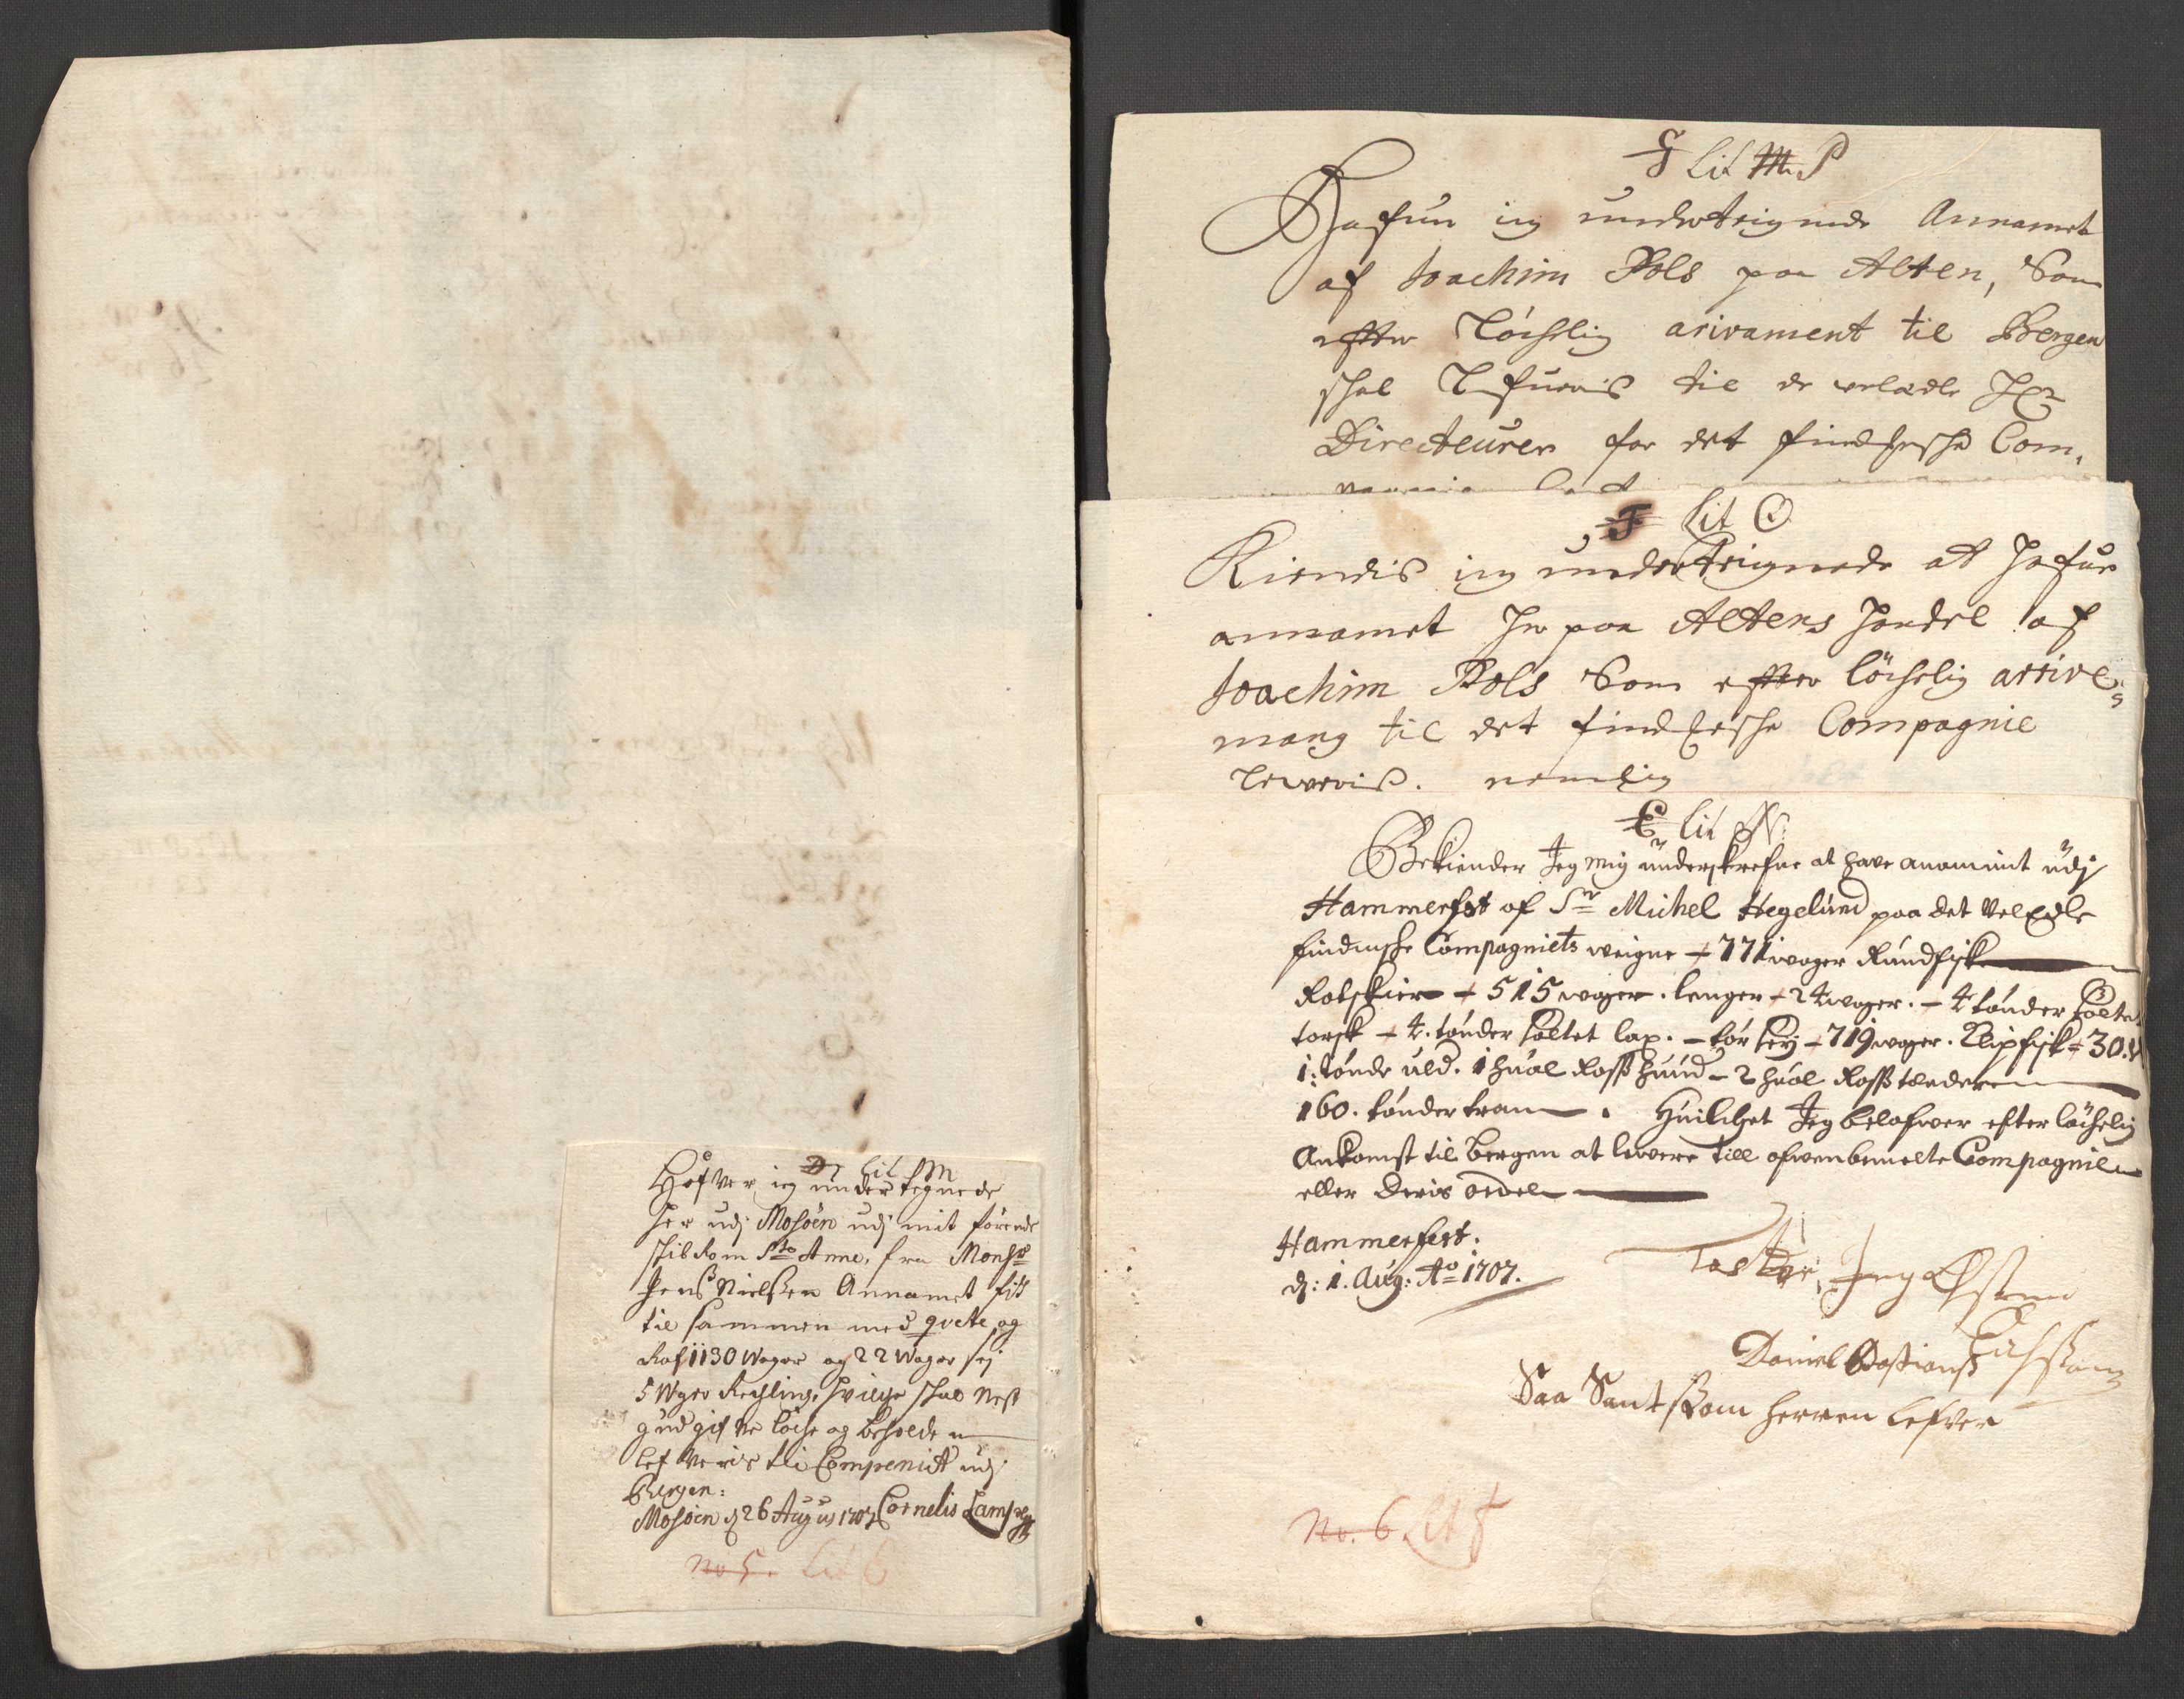 D Lit M
Hafver ieg undertegnede
her udj Mosöen udj mit förende
skib kom Sto Anne, fra Monsr
Jens Nielsen Annamet fisk
til sammen med qvete og
Raf 1130 Woger og 22 Woger sej
5 Wger Rechling, hvilche schal Nest
gud gifve löche og beholden
lefveris til Compeniet udj
Bergen:
Mosöen d 26 Augus 1707 Cornelis Lamp
No 5. Lit E
G Lit M P
Hafuer ieg underteignede Annamet
af Joachim Pols paa Alten, Som
efter Löchelig arivament til Bergen
schal Lefueris til de veledle Hr
Directeurer for det findhersche Com,
F Lit O
Kiendis ieg undertteignede at hafue
annamet her paa Altens handel af
Joachim Pols Som efter löchelig arrive
mang til det findhersche Compagnie
Leveris. nemlig
E Lit N:
Bekiender Jeg mig underskrefne at have anammit udj
Hammerfest af Sr Michel Hegelund paa det Vel Edle
findmshe Compagniets weigne + 771 woger Rundfisk
Rotskier + 515 woger. lenger + 24 woger. – 4 tönder Salte
torsk + 4. tönder Saltet lax. – tör sej + 719 woger. Klipfisk + 30. W
1: tönde uld. 1 hual Ross huud – 2 hual Ross tænder
160. tönder tran. Huilchet Jeg belofwer efter löchelig
Ankomst til Bergen at levere till ofwenbemelte Compagnie
eller deris ordre
Hammerfest.
d: 1. Aug: Ao 1707.
Daniel Bastians
Saa Sant Som herren lefver
No. 6 Lit F